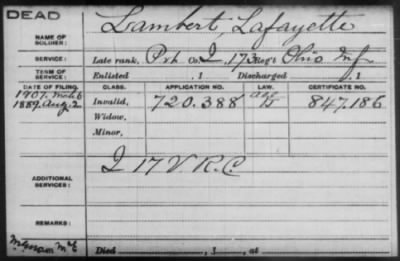 DEAD
NAME OF SOLDIER: Lambert, Lafayette
SERVICE: Late rank, Pvt Co. I, 173 Reg't Ohio Inf
TERM OF SERVICE: Enlisted , 1 Discharged , 1
DATE OF FILING. CLASS. APPLICATION NO. LAW. CERTIFICATE NO.
1907.
1889. Aug. 2 Invalid, 720.388 847.186
Widow,
Minor,
ADDITIONAL SERVICES: I 17 V.R.C.
REMARKS:
Died , 1 , at